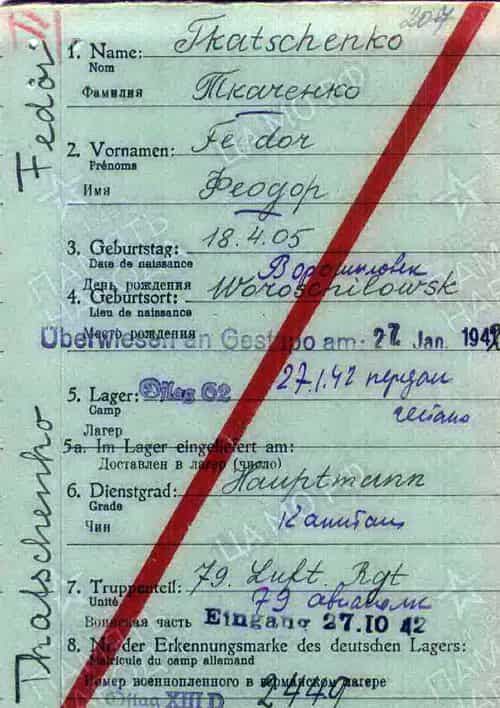 207
1. Name: Tkatschenko
Nom
Фамилия Ткаченко
2. Vornamen: Fedor
Prénoms
Имя Феодор
3. Geburtstag: 18.4.05
Date de naissance
День рождения Ворошиловск
4. Geburtsort: Woroschilowsk
Lieu de naissance
Место рождения
Überwiesen an Gestapo am: 27. Jan. 1942
27.1.42 передан
гестапо
5. Lager: Oflag 62
Camp
Лагерь
5a. Im Lager eingeliefert am:
Доставлен в лагерь (число)
6. Dienstgrad: Hauptmann
Grade
Чин Капитан
7. Truppenteil: 79. Luft. Rgt
Unité 79 авиаполк
Воинская часть Eingang 27.10 42
8. Nr. der Erkennungsmarke des deutschen Lagers:
Matricule du camp allemand
Номер военнопленного в германском лагере
Oflag XIII D 2449
Thatschenko Fedór
ЦАМО РФ
ПАМЯТЬ